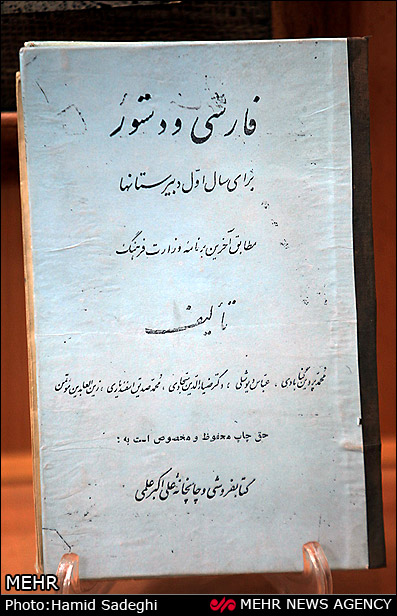 فارسی و دستور
برای سال اوّل دبیرستانها
مطابق آخرین برنامه وزارت فرهنگ
تألیف
محمد پروین گنابادی ، عباس ایوشلی ، دکتر ضیاءالدین سجادی ، محمد صدیق اسفندیاری ، زین العابدین مؤتمن
حق چاپ محفوظ و مخصوص است به :
کتابفروشی و چاپخانهٔ علی اکبر علمی
MEHR
Photo:Hamid Sadeghi
MEHR NEWS AGENCY